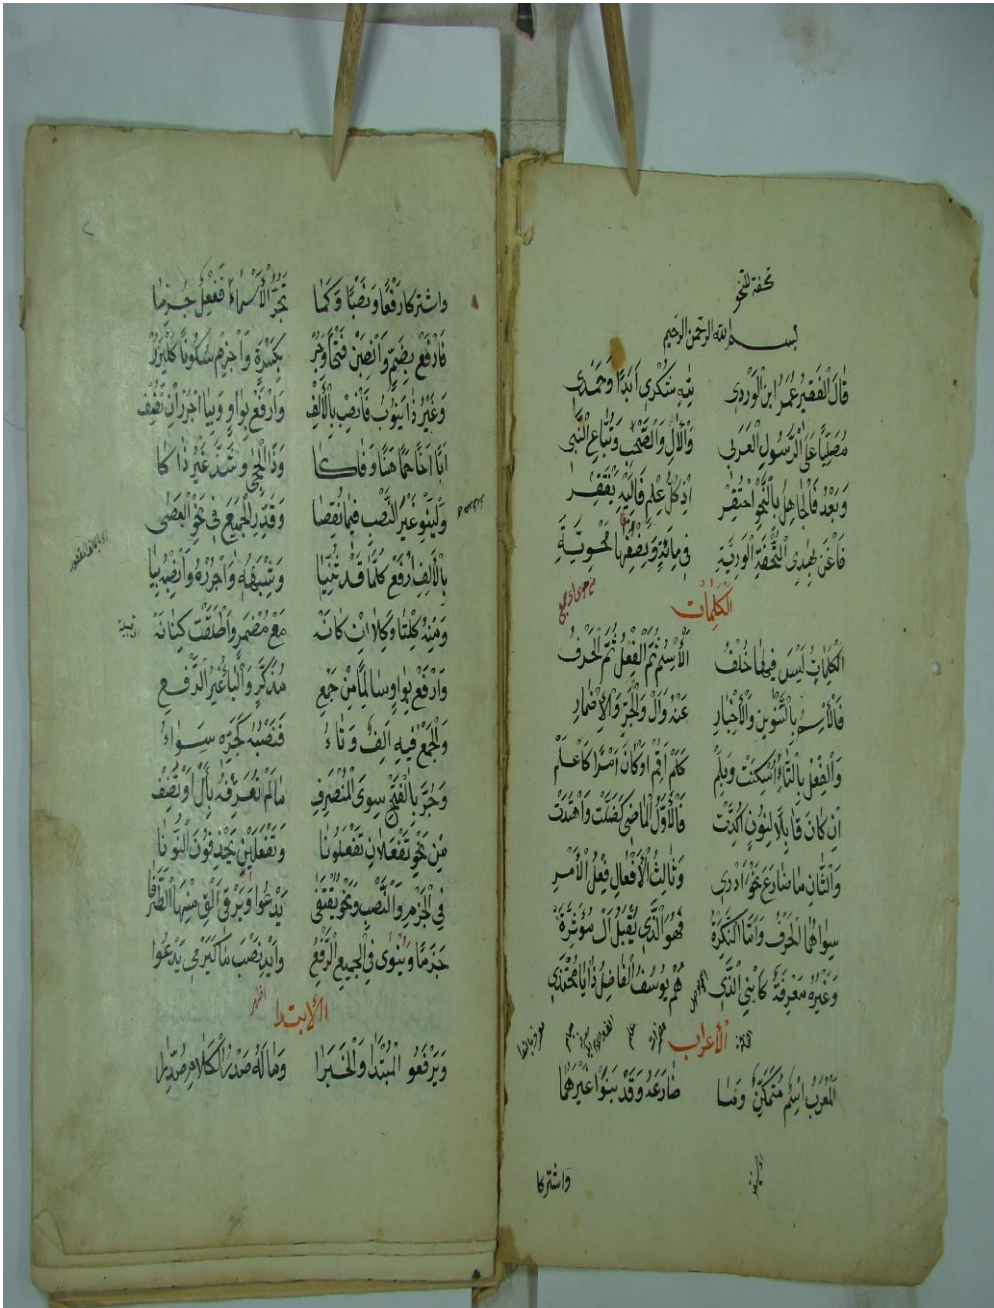 تحفة النحو
بسم الله الرحمن الرحيم
قَالَ الْفَقِيرُ عُمَرُ ابْنُ الْوَرْدِي لِلّٰهِ شُكْرِى اَبَدًا وَحَمْدِى
مُصَلِّيًا عَلَى الرَّسُولِ الْعَرَبِى وَالْاٰلِ وَالصَّحْبِ وَتُبَّاعِ النَّبِى
وَبَعْدُ فَالْجَاهِلُ بِالنَّحْوِ احْتُقِرْ اِذْ كُلُّ عِلْمٍ فَاِلَيْهِ يَفْتَقِرْ
فَاغْنَ بِهٰذِى التُّحْفَةِ الْوَرْدِيَّةِ فِى مِائَةٍ وَنِصْفِهَا مَحْوِيَّةَ
الكلمات
الْكَلِمَاتُ لَيْسَ فِيهَا خُلْفُ اَلْاِسْمُ ثُمَّ الْفِعْلُ ثُمَّ الْحَرْفُ
فَالْاِسْمُ بِالتَّنْوِينِ وَالْاِخْبَارِ عَنْهُ وَاَلْ وَالْجَرِّ وَالْاِضْمَارِ
وَالْفِعْلُ بِالتَّاءِ اُسْكِنَتْ وَبِلَمْ كَلَمْ اَقِمْ اَوْ كَانَ اَمْرًا كَاعْلَمْ
اِنْ كَانَ قَابِلًا لِنُونٍ اَكَّدَتْ فَالْاَوَّلُ الْمَاضِى كَصَلَّتْ وَاهْتَدَتْ
وَالثَّانِ مَا ضَارَعَ نَحْوُ اَدْرِى وَثَالِثُ الْاَفْعَالِ فِعْلُ الْاَمْرِ
سِوَاهُمَا الْحَرْفُ وَاَمَّا النَّكِرَةْ فَهُوَ الَّذِى يَقْبَلُ اَلْ مُؤَثِّرَةْ
وَغَيْرُهُ مَعْرِفَةٌ كَابْنِى الَّذِى هُمْ يُوسُفُ الْفَاضِلُ ذَا يَا مُحْتَذِى
الأعراب
اَلْمُعْرَبُ اسْمٌ مُتَمَكِّنٌ وَمَا ضَارَعَهُ وَقَدْ بَنَوْا غَيْرَهُمَا
واشتركا
وَاشْتَرَكَا رَفْعًا وَنَصْبًا وَكَمَا تَجُرُّ الْاَسْمَاءَ فَفِعْلٌ جُزِمَا
فَارْفَعْ بِضَمٍّ وَانْصِبَنْ فَتْحًا وَجُرّْ بِكَسْرَةٍ وَاجْزِمْ سُكُونًا
وَغَيْرُ ذَا يَنُوبُ فَانْصِبْ بِالْاَلِفْ وَارْفَعْ بِوَاوٍ وَبِيَا اجْرُرْ اِنْ تُضِفْ
اَبًا اَخًا حَمًا هَنًا وَفَاكَا وَذَا الْحِجَى وَشَذَّ غَيْرُ ذَاكَا
وَلْيَنْوِ غَيْرَ النَّصْبِ فِيمَا نُقِصَا وَقَدِّرِ الْجَمِيعَ فِى نَحْوِ الْعَصٰى
بِالْاَلِفِ ارْفَعْ كُلَّمَا قَدْ ثُنِّيَا وَشِبْهَهُ وَاجْرُرْهُ وَانْصِبْهُ بِيَا
وَمِنْهُ كِلْتَا وَكِلَا اِنْ كَانَهْ مَعْ مُضْمَرٍ وَاَطْلَقَتْ كِنَانَهْ
وَارْفَعْ بِوَاوٍ سَالِمًا مِنْ جَمْعِ مُذَكَّرٍ وَالْيَا لِغَيْرِ الرَّفْعِ
وَالْجَمْعُ فِيهِ اَلِفٌ وَتَاءُ فَنَصْبُهُ كَجَرِّهِ سَوَاءُ
وَجُرَّ بِالْفَتْحِ سِوَى الْمُنْصَرِفِ مَا لَمْ تُعَرِّفْهُ بِاَلْ اَوْ تُضِفِ
مِنْ نَحْوِ تَفْعَلَانِ تَفْعَلُونَا وَتَفْعَلِينَ يَحْذِفُونَ النُّونَا
فِى الْجَزْمِ وَالنَّصْبِ وَنَحْوُ يُقْتَفٰى يَدْعُوا وَيَرْقَى
جَزْمًا وَيُنْوٰى فِى الْجَمِيعِ الرَّفْعُ وَابْدِ نَصْبَ مَا كَيَرْمِى يَدْعُوا
الأبتدا
وَيَرْفَعُو الْمُبْتَدَا وَالْخَبَرَا وَمَا لَهُ صَدْرُ الْكَلَامِ صُدِّرَا